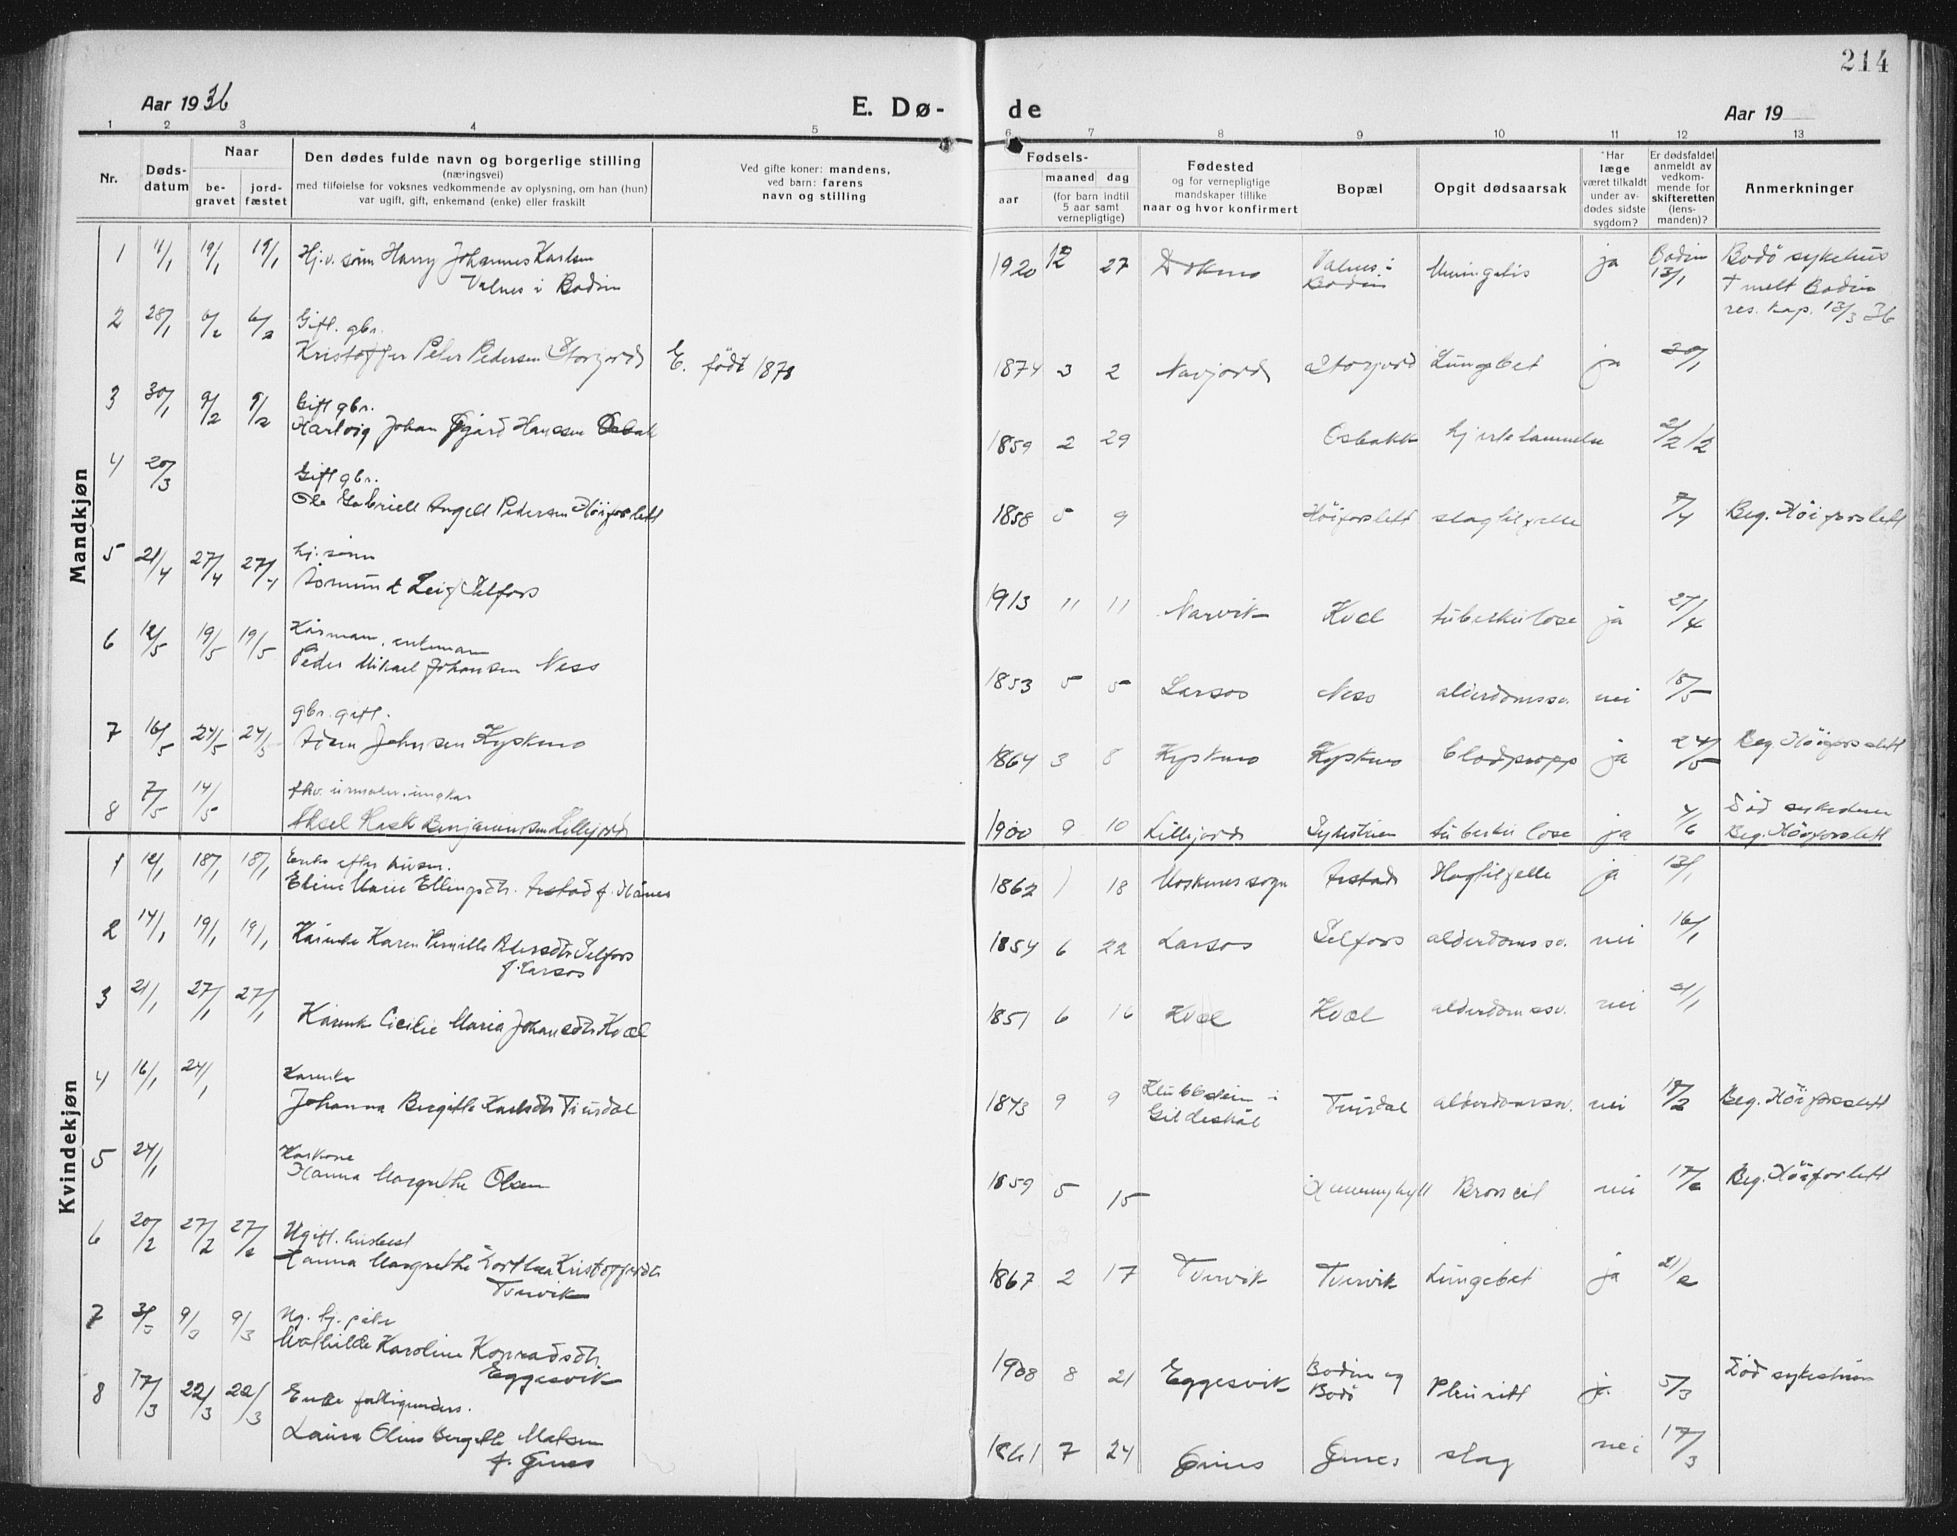 214
Aar 1936
E. Dø-
de
Aar 19
1 2 3 4 5 6 7 8 9 10 11 12 13
Nr.
Døds-
datum
Naar
be-
gravet
jord-
fæstet
Den dødes fulde navn og borgerlige stilling
(næringsvei)
med tilføielse for voksnes vedkommende av oplysning, om han (hun)
var ugift, gift, enkemand (enke) eller fraskilt
Ved gifte koner: mandens,
ved barn: farens
navn og stilling
Fødsels-
aar
maaned dag
(for barn indtil
5 aar samt
vernepligtige)
Fødested
og for vernepligtige
mandskaper tillike
naar og hvor konfirmert
Bopæl
Opgit dødsaarsak
Har
læge
været tilkaldt
under av-
dødes sidste
sygdom?
Er dødsfaldet
anmeldt av
vedkom-
mende for
skifteretten
(lens-
manden)?
Anmerkninger
Mandkjøn
1 11/1 19/1 19/1 Hj.v. sønn Harry Johannes Karlsen
Valnes i Bodin
1920 12 27 Valnes i
Bodin ja Bodin
13/1 Bodø sykehus
† melt Bodin
res. kap. 12/3 36
2 28/1 6/2 6/2 Gift. gbr.
Kristoffer Peter Pedersen Storjord E. født 1878
1874 3 2 Navjord Storjord Lungebet ja 30/1
3 30/1 9/2 9/2 Gift gbr.
Hartvig Johan Hansen
1859 2 29 Osbakk hjertelammelse 2/2
4 20/3 Gift gbr.
Ole Gabriell Angell Pedersen Høiforslett
1858 5 9 Høiforslett slagtilfelle 7/4 Beg. Høiforslett
5 21/4 27/4 27/4 hj. sønn
Leif Selfors
1913 11 11 Narvik Kvæl tuberkulose ja 27/4
6 12/5 19/5 19/5 Kårmann, enkemann
Peder Mikael Johansen Ness
1853 5 5 Larsos Ness alderdomssv. nei 18/5
7 16/5 24/5 24/5 gbr. gift.
Johnsen Kyskmo
1864 3 8 Kyskmo Kyskmo blodpropp ja 24/5 Beg. Høiforslett
8 7/5 14/5 fhv. urmaker, ungkar
Aksel Benjaminsen Lillejord
1900 9 10 Lillejord tuberkulose ja 4/6 Død
Beg. Høiforslett
Kvindekjøn
1 12/1 18/1 18/1 Enke efter
Eline Marie Ellingsdtr. Arstad f. Hånes
1862 1 18 Moskenes sogn Arstad slagtilfelle ja 13/1
2 14/1 19/1 19/1 Kårenke Karen Pernille Pedersdtr. Selfors
f. Larsos
1854 6 22 Larsos Selfors alderdomssv. nei 16/1
3 21/1 27/1 27/1 Kårenk Cicilie Maria Johansdtr. Kvæl
1851 6 16 Kvæl Kvæl alderdomssv. nei 21/1
4 16/1 24/1 Kårenke
Johanna Bergitte Karlsdtr.
1873 9 9 i
Gildeskål alderdomssv. nei Beg. Høiforslett
5 24/1 Kårkone
Hanna Margrethe Olsen
1859 5 15 nei Beg. Høiforslett
6 20/2 27/2 27/2 Ugift.
Hanna Margrethe Dorthea Kristoffersdtr.
Tvervik
1867 2 17 Tvervik Tvervik Lungebet ja 21/2
7 3/3 9/3 9/3 Ug. hj. pike
Mathilde Karoline Konradsdtr.
Eggesvik
1908 8 21 Eggesvik Bodin og
Bodø Pleuritt ja 5/3 Død sykehus
8 17/3 22/3 22/3 Enke fattigunders.
Laura Oline Bergitte Matsen
f. Grines
1861 7 24 Grines Grines slag nei 17/3